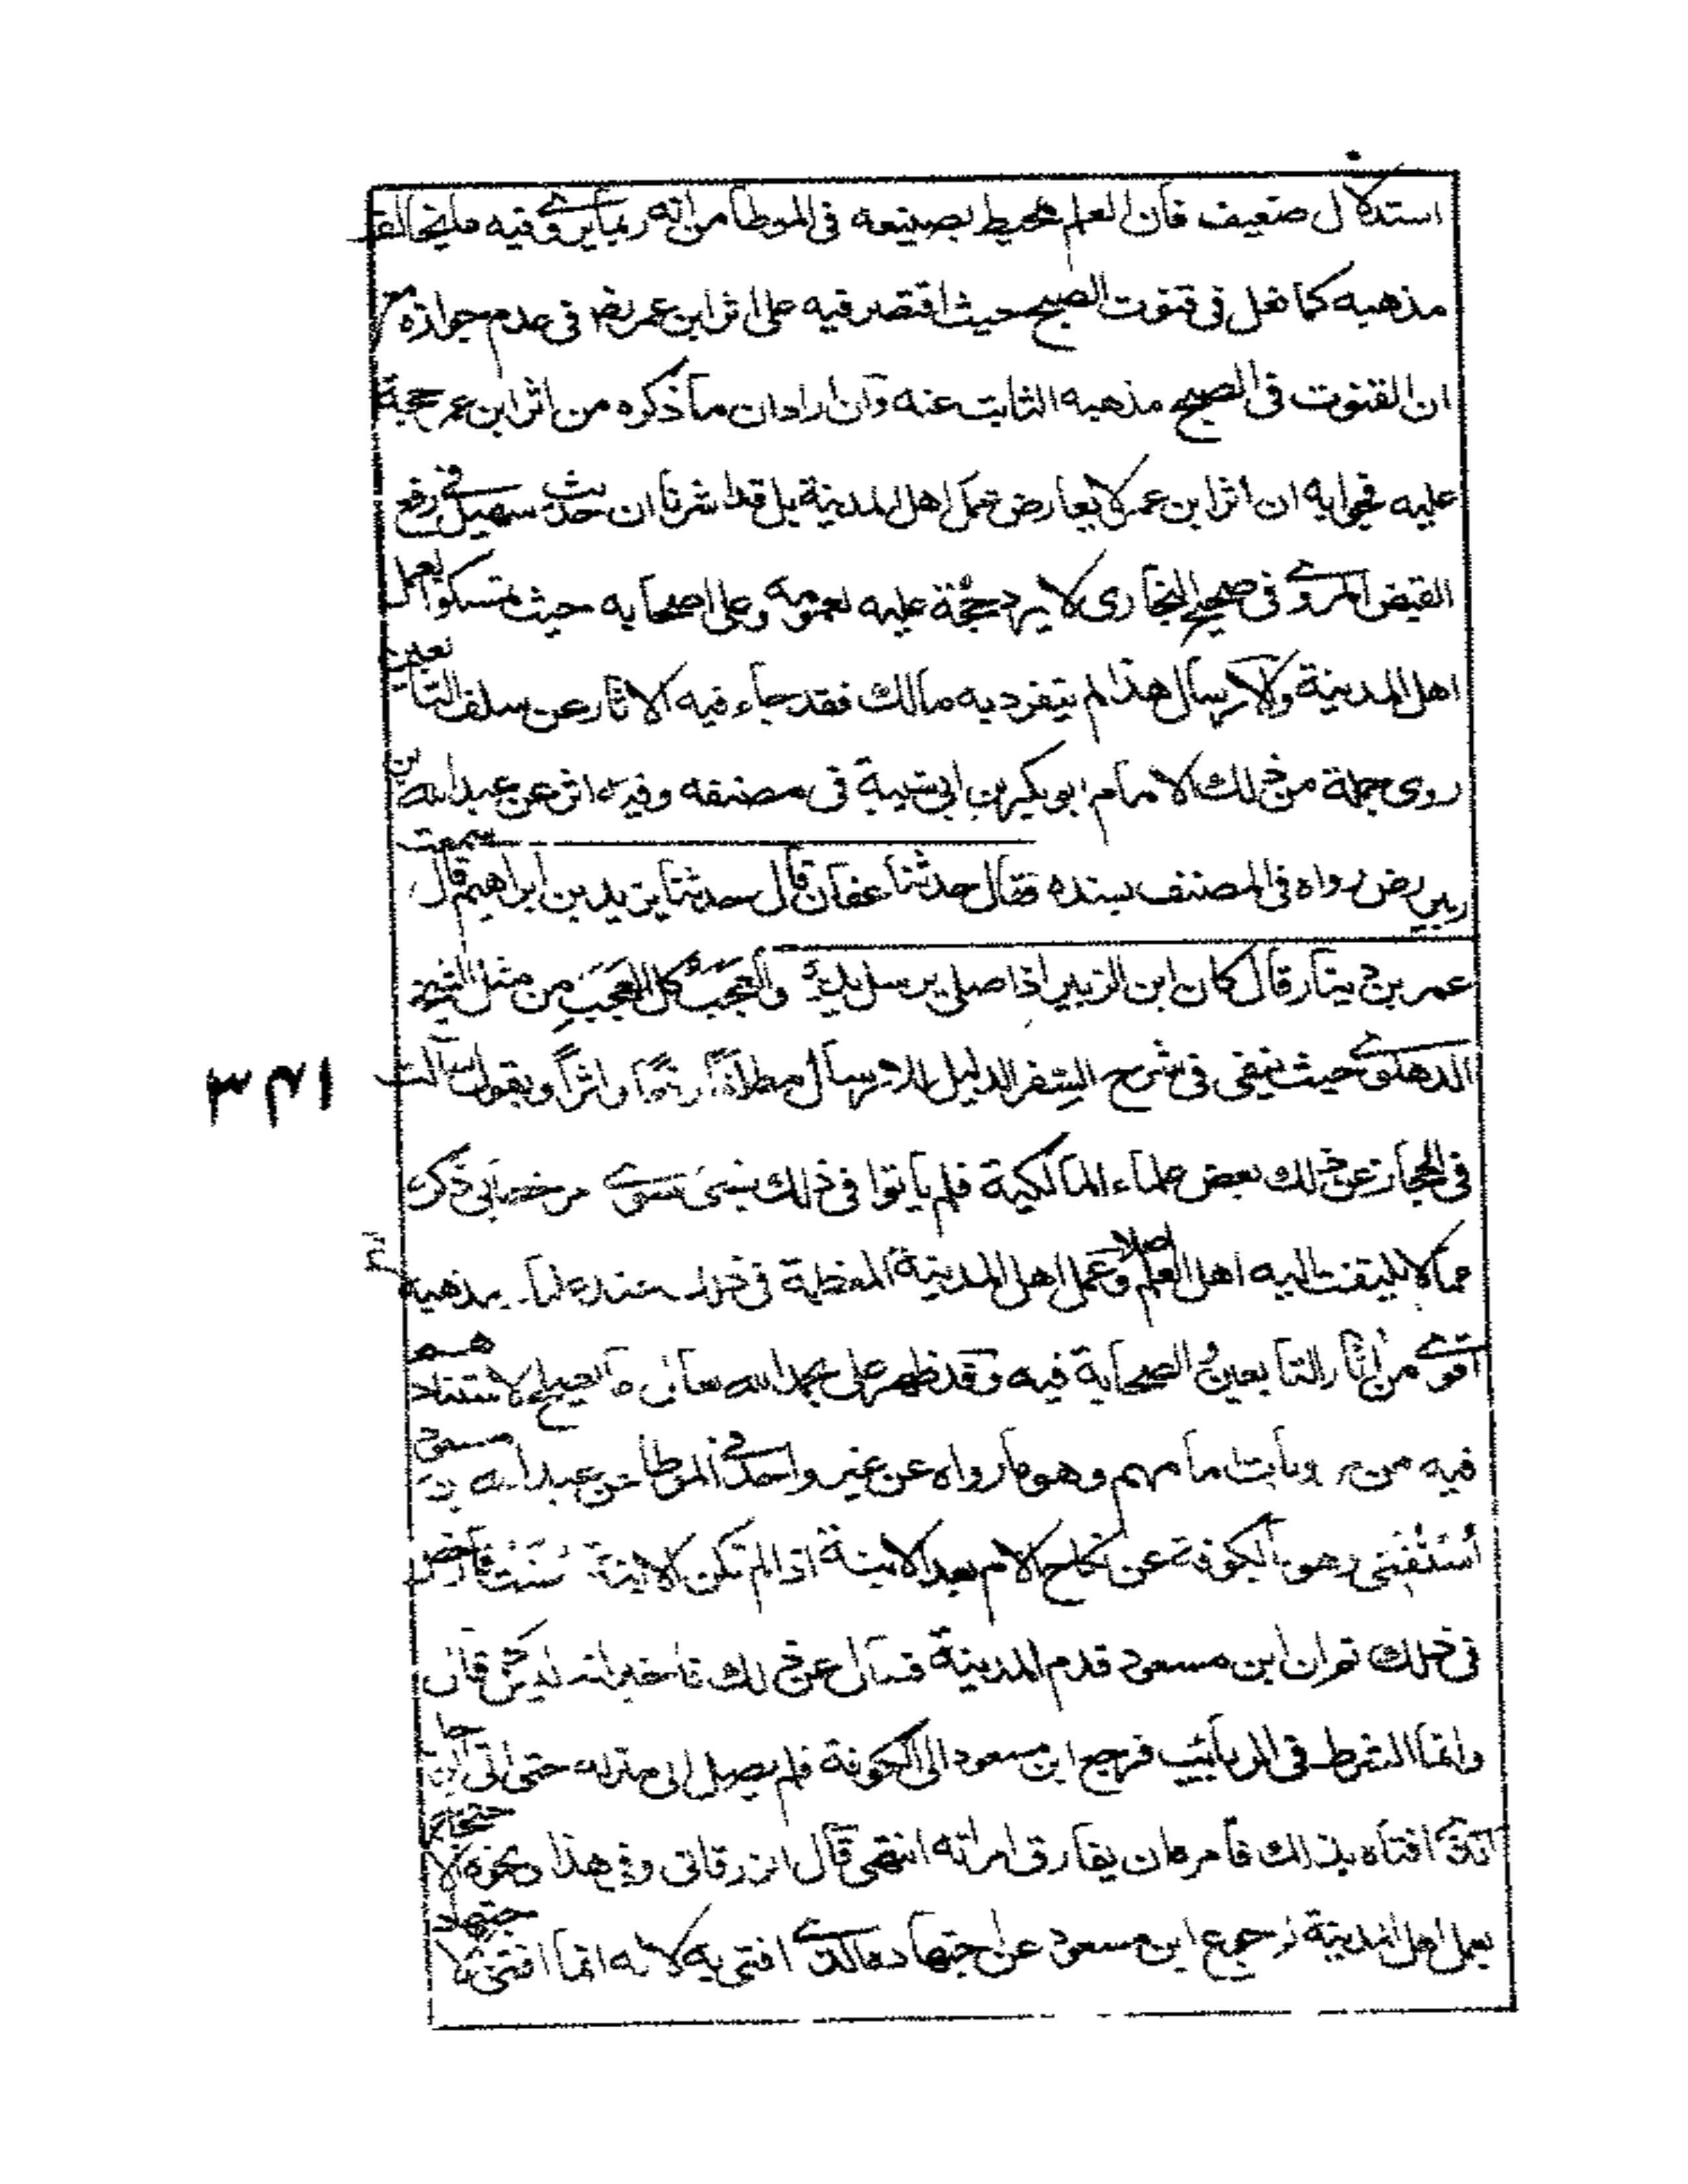 استدلال ضعيف فان العلم محيط بصنيعه فى الموطا من انه ربما يروى فيه ما يخالف
مذهبه كما فعل فى قنوت الصبح حيث اقتصر فيه على اثر ابن عمر رض فى عدم جوازه مع
ان القنوت فى الصبح مذهبه الثابت عنه وان اراد ان ما ذكره من اثر ابن عمر حجة
عليه فجوابه ان اثر ابن عمر لا يعارض عمل اهل المدينة بل قد اشرنا ان حديث سهيل فى رفع
القبض المروى فى صحيح البخارى لا يرد حجة عليه لعمومه وعلى اصحابه حيث تمسكوا بعمل
اهل المدينة والارسال هذا لم يتفرد به مالك فقد جاء فيه الاثار عن سلف التابعين
روى جملة من ذلك الامام ابو بكر بن ابى شيبة فى مصنفه وفيه اثر عن عبد الله بن
زبير رض رواه فى المصنف بسنده فقال حدثنا عفان قال حدثنا يزيد بن ابراهيم قال سمعت
عمر بن دينار قال كان ابن الزبير اذا صلى يرسل يديه والعجب كل العجب من مثل الشيخ
الدهلوى حيث ينفى فى شرح السفر الدليل للارسال مطلقا رفعا واثرا ويقول سالت
فى الحجاز عن ذلك بعض علماء المالكية فلم ياتوا فى ذلك بشئ سوى
مما لا يلتفت اليه اهل العلم اصلا وعمل اهل المدينة المعظمة فى ذلك عند علماء مذهبه
اقوى من اثار التابعين والصحابة فيه وقد ظهر على بحمد الله سبحانه ما يصلح لاستنادهم
فيه من روايات مامهم وهو ما رواه عن غير واحد فى الموطا عن عبد الله بن مسعود
استفتى وهو بالكوفة عن نكاح الام بعد الابنة اذا لم تكن الابنة مست فارخص
فى ذلك ثم ان ابن مسعود قدم المدينة فسال عن ذلك فاخبر انه ليس كما قال
وانما الشرط فى الربائب فرجع ابن مسعود الى الكوفة فلم يصل الى منزله حتى اتى الرجل
الذى افتاه بذلك فامره ان يفارق امراته انتهى قال الزرقانى وفى هذا ونحوه الاحتجاج
بعمل اهل المدينة رجوع ابن مسعود عن اجتهاده الذى افتى به لانه انما افتى بالاجتهاد
٣٢١